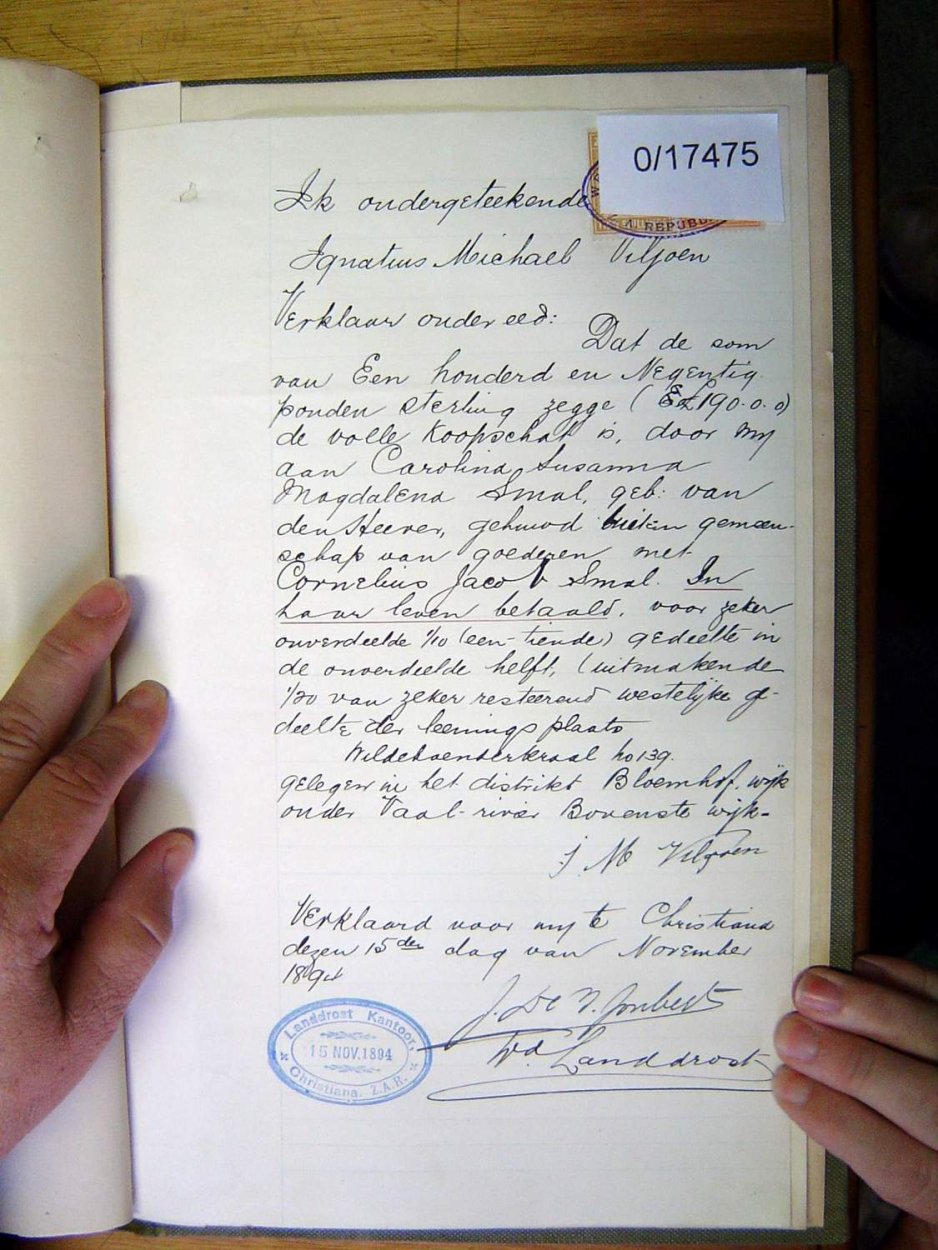 0/17475
REPUB
Ik ondergeteekende
Ignatius Michael Viljoen
Verklaar onder eed:
Dat de som
van Een honderd en Negentig
ponden sterling zegge (£190.0.0)
de volle Koopschat is, door my
aan Carolina Susanna
Magdalena Smal, geb: van
den Heever, gehuwd buiten gemeen-
schap van goederen met
Cornelius Jacob Smal. In
haar leven betaald, voor zeker
onverdeelde 1/10 (een-tiende) gedeelte in
de onverdeelde helft, (uitmakende
1/20 van zeker resteerend westelijke ge-
deelte der leenings plaats
Wildehoenderkraal no 139.
gelegen in het distrikt Bloemhof, wijk
onder Vaal-rivier Bovenste wijk-
I M Viljoen
Verklaard voor my te Christiana
dezen 15den dag van November
1894
J. De V. Joubert
Wd. Landdrost
Landdrost Kantoor,
15 NOV. 1894
Christiana. Z.A.R.